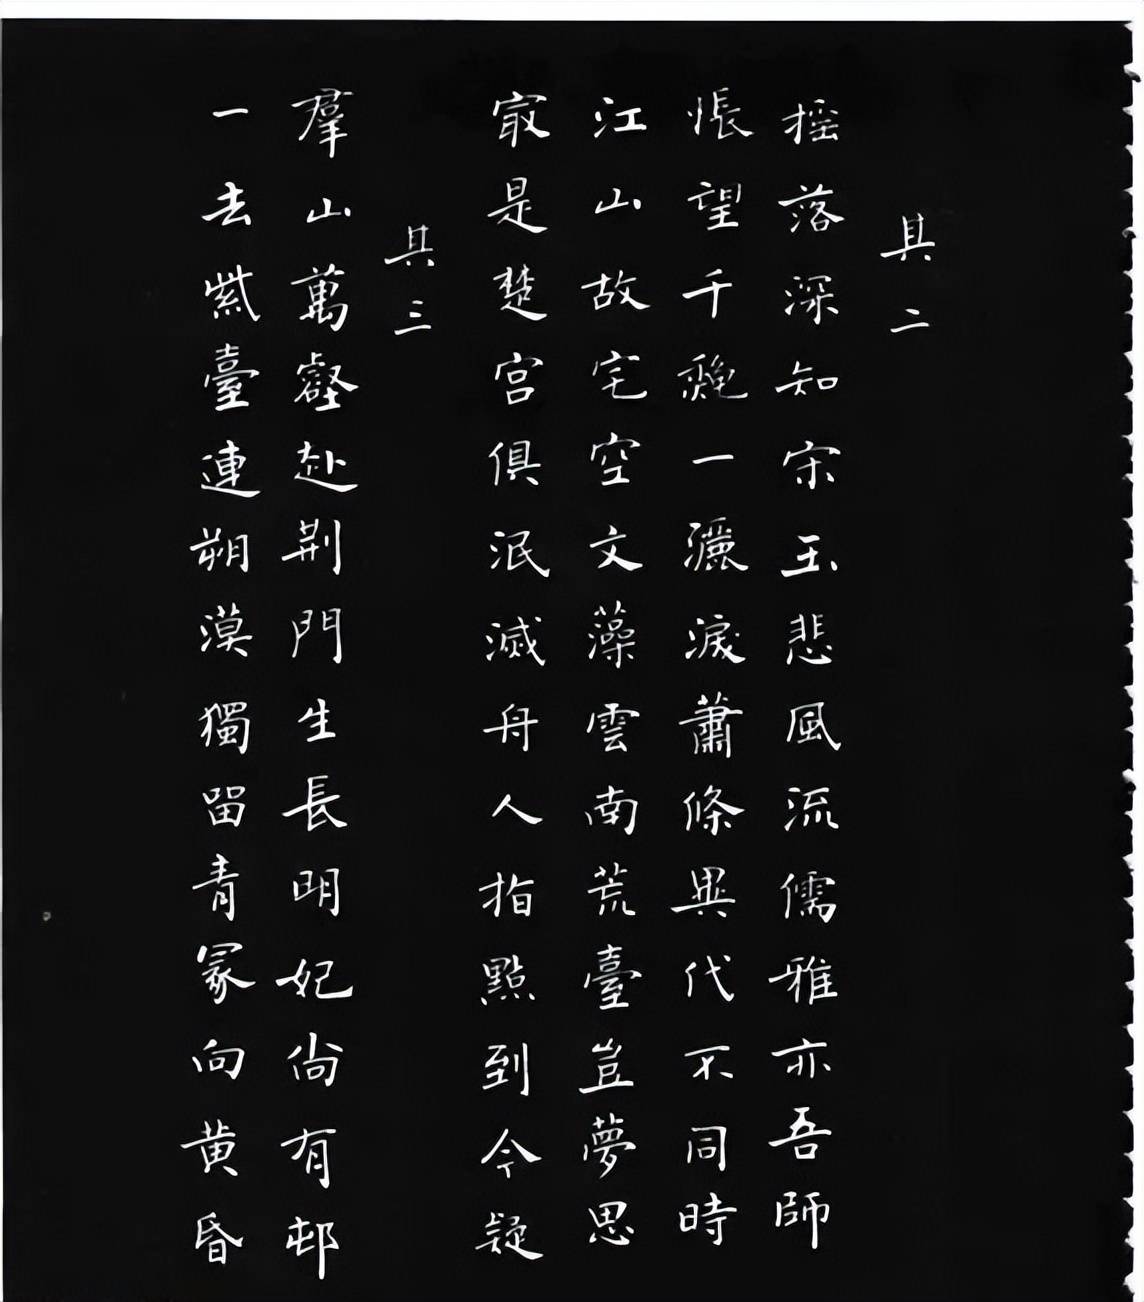 其二
搖落深知宋玉悲風流儒雅亦吾師
悵望千穐一灑淚蕭條異代不同時
江山故宅空文藻雲南荒臺豈夢思
㝡是楚宮俱泯滅舟人指點到今疑
其三
羣山萬壑赴荆門生長明妃尚有邨
一去紫臺連朔漠獨留青冢向黄昏